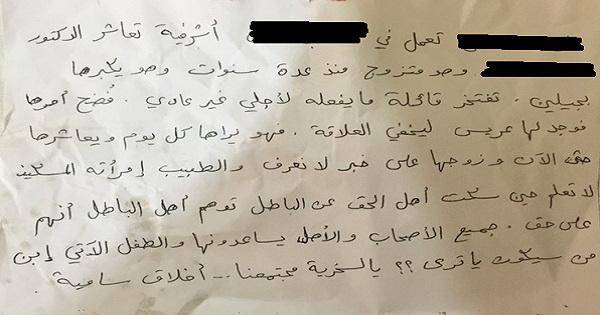 تعمل في أشرفية تعاشر الدكتور
وهو متزوج منذ عدة سنوات وهو يكبرها
بجيلين. تفتخر قائلة ما يفعله لأجلي غير عادي. فُضح أمرها
فوجد لها عريس ليخفي العلاقة. فهو يراها كل يوم ويعاشرها
حتى الآن وزوجها على خبر لا نعرف والطبيب إمرأته المسكينة
لا تعلم حين سكت أهل الحق عن الباطل توهم أهل الباطل أنهم
على حق. جميع الأصحاب والأهل يساعدونها والطفل الآتي إبن
من سيكون يا ترى؟؟ يا لسخرية مجتمعنا... أخلاق سامية.